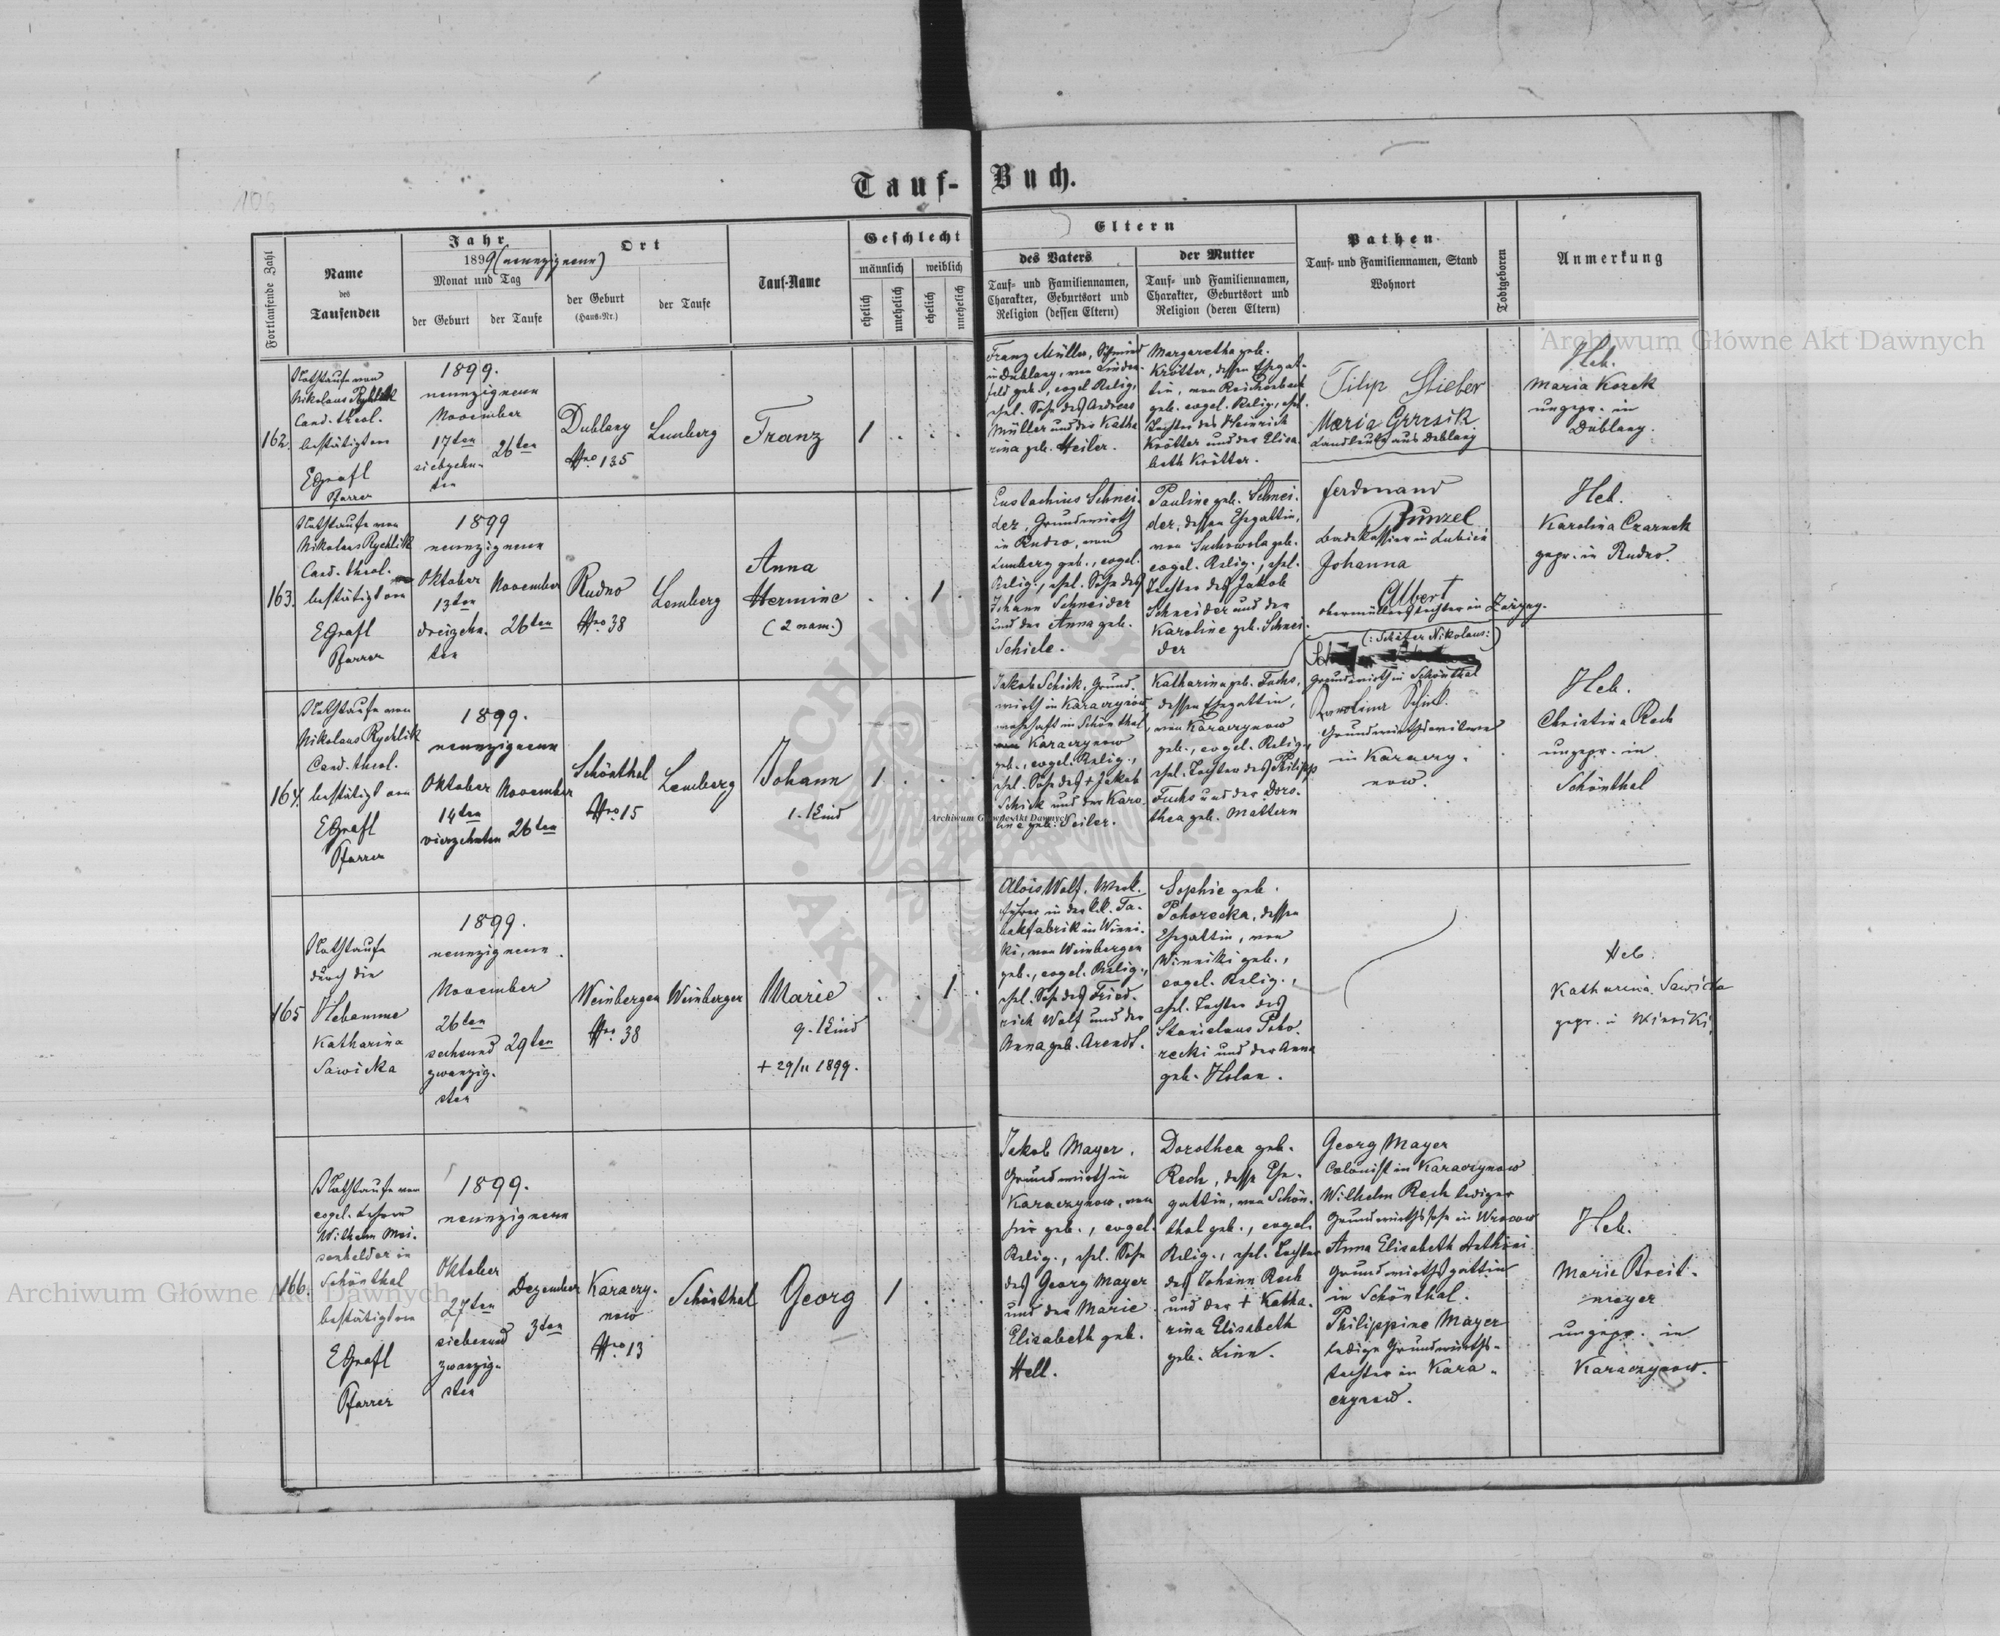 106
Tauf-Buch.
Fortlaufende Zahl
Name
des
Taufenden
Jahr
1899 (neunzigneun)
Monat und Tag
der Geburt
der Taufe
Ort
der Geburt
(Haus-Nr.)
der Taufe
Tauf-Name
Geschlecht
männlich
weiblich
ehelich
unehelich
ehelich
unehelich
Eltern
des Vaters
Tauf- und Familiennamen,
Charakter, Geburtsort und
Religion (dessen Eltern)
der Mutter
Tauf- und Familiennamen,
Charakter, Geburtsort und
Religion (deren Eltern)
Pathen
Tauf- und Familiennamen, Stand
Wohnort
Todtgeboren
Anmerkung
162.
Nothtaufe von
Nikolaus Rychlik
Cand. theol.
bestätigt von
EGrafl
Pfarrer
1899.
neunzigneun
November
17ten
siebzehn-
ten
26ten
Dublany
Hno 135
Lemberg
Franz
1
Franz Müller, Schmied
in Dublany, von Linden-
feld geb., evgel. Relig.,
ehel. Sohn des Andreas
Müller und der Katha
rina geb. Heiler.
Margaretha geb.
Krötter, dessen Ehegat-
tin, von Reichenbach
geb. evgel. Relig., ehel.
Tochter des Heinrich
Krötter und der Elisa
beth Krötter.
Filip Stieber
Maria
Landleute aus Dublany
Heb.
Maria Korek
ungepr. in
Dublany.
163.
Nothtaufe von
Nikolaus Rychlik
Cand. theol.
bestätigt von
EGrafl
Pfarrer
1899
neunzigneun
Oktober
13ten
dreizehn-
ten
November
26ten
Rudno
Hno 38
Lemberg
Anna
Hermine
(2 nam.)
1
Eustachius Schnei-
der, Grundwirth
in Rudno, von
Lemberg geb., evgel.
Relig., ehel. Sohn des
Johann Schneider
und der Anna geb.
Schiele.
Pauline geb. Schnei-
der, dessen Ehegattin,
von Suchowola geb.
evgel. Relig., ehel.
Tochter des Jakob
Schneider und der
Karoline geb. Schnei-
der
Ferdinand
Bunzel
Badekassier in Lubień
Johanna
Albert
Obermüllerstochter in
Heb.
Karolina Czarnek
gepr. in Rudno.
164.
Nothtaufe von
Nikolaus Rychlik
Cand. theol.
bestätigt von
EGrafl
Pfarrer
1899.
neunzigneun
Oktober
14ten
vierzehnten
November
26ten
Schönthal
Hno 15
Lemberg
Johann
1. Kind
1
Jakob Schick, Grund-
wirth in Karaczynow
wohnhaft in Schönthal
von Karaczynow
geb., evgel. Relig.,
ehel. Sohn des + Jakob
Schick und der Karo-
line geb. Seiler.
Katharina geb. Fuchs,
dessen Ehegattin,
von Karaczynow
geb., evgel. Relig.,
ehel. Tochter des Philipp
Fuchs und der Doro-
thea geb. Mattern
(: Schäfer Nikolaus:)
Grundwirth in Schönthal
Karolina Schick
Grundwirthswitwe
in Karaczy-
now.
Heb.
Christina Rech
ungepr. in
Schönthal
165
Nothtaufe
durch die
Hebamme
Katharina
Sawicka
1899.
neunzigneun.
November
26ten
sechsund
zwanzig-
sten
29ten
Weinbergen
Hno 38
Weinbergen
Marie
9. Kind
+ 29/11 1899.
1
Alois Wolf, Werk-
führer in der k.k. Ta-
bakfabrik in Winni-
ki, von Weinbergen
geb., evgel. Relig.,
ehel. Sohn des Fried-
rich Wolf und der
Anna geb. Arendt.
Sophie geb.
Pohorecka, dessen
Ehegattin, von
Winniki geb.,
evgel. Relig.,
ehel. Tochter des
Stanislaus Poho-
recki und der Anna
geb. Holan.
Heb.
Katharina Sawicka
gepr. in Winniki
166.
Nothtaufe von
evgel. Lehrer
Wilhelm Mei-
senhelder in
Schönthal
bestätigt von
EGrafl
Pfarrer
1899.
neunzigneun
Oktober
27ten
siebenund
zwanzig-
sten
Dezember
3ten
Karaczy-
now
Hno 13
Schönthal
Georg
1
Jakob Mayer,
Grundwirth in
Karaczynow, von
hier geb., evgel.
Relig., ehel. Sohn
des Georg Mayer
und der Marie
Elisabeth geb.
Hell.
Dorothea geb.
Rech, dessen Ehe-
gattin, von Schön-
thal geb., evgel.
Relig., ehel. Tochter
des Johann Rech
und der + Katha-
rina Elisabeth
geb. Linn.
Georg Mayer
Colonist in Karaczynow
Wilhelm Rech lediger
Grundwirthssohn in
Anna Elisabeth
Grundwirthsgattin
in Schönthal.
Philippine Mayer
ledige Grundwirths-
tochter in Kara-
czynow.
Heb.
Marie Breit-
meyer
ungepr. in
Karaczynow.
Archiwum Główne Akt Dawnych
Archiwum Główne Akt Dawnych
Archiwum Główne Akt Dawnych